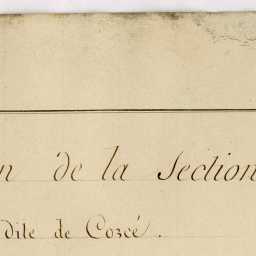 n de la Section
dite de Corcé.